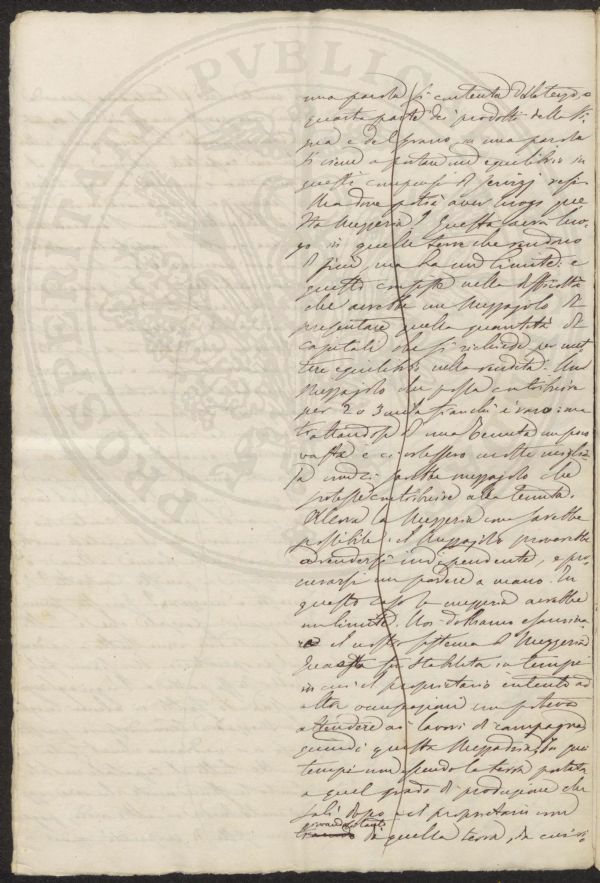 una parola si contenta della terza, o
quarta parte dei prodotti della Vi-
gna e del grano in una parola
si viene a portare un equilibrio in
questi compensi di servizj resi.
Ma dove potrà aver luogo que
sta Mezzeria? Questa avrà luo-
go in quelle terre che rendono
di più, ma ha un limite: e
questo consiste nella difficoltà
che avrebbe un Mezzajolo di
presentare quella quantità di
capitali che si richiede per met
tere equilibrio nella rendita. Un
Mezzajolo che possa contribuire
per 2 o 3 mila franchi è raro: ma
trattandosi di una Tenuta un poco
vasta e ci volessero molte miglia
ja non ci sarebbe mezzajolo che
potesse contribuire alla tenuta.
Allora la Mezzeria non sarebbe
possibile. il Mezzajolo proverebbe
a rendersi indipendente, e pro-
curarsi un podere a mano. In
questo caso la mezzeria avrebbe
un limite. Noi dobbiamo esamina
re il nostro sistema di Mezzeria
Questa fu stabilita in tempi
in cui il proprietario intento ad
altre occupazioni non poteva
attendere ai lavori di campagna
quindi questa Mezzadria. In quei
tempi non essendo la terra portata
a quel grado di produzione che
salì dopo e il proprietario non
di quella terra, da cui si
PROSPERITATI PVBLICAE